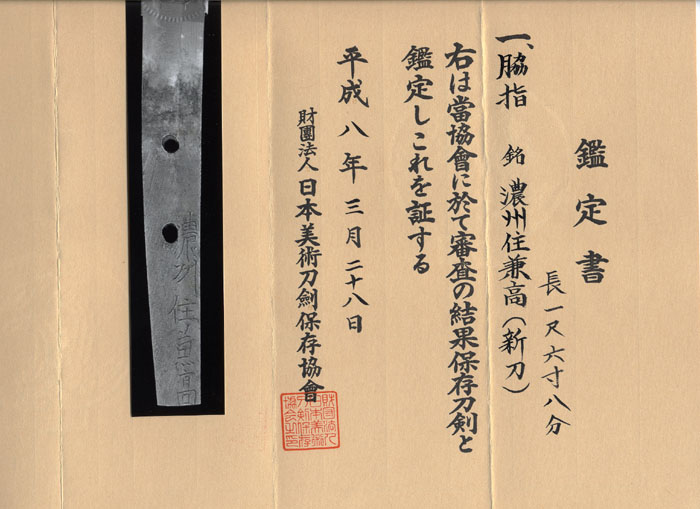 鑑定書
一、脇指 銘 濃州住兼高(新刀)
長一尺六寸八分
右は當協會に於て審査の結果保存刀剣と
鑑定しこれを証する
平成八年三月二十八日
財團法人日本美術刀劍保存協會
濃州住兼高